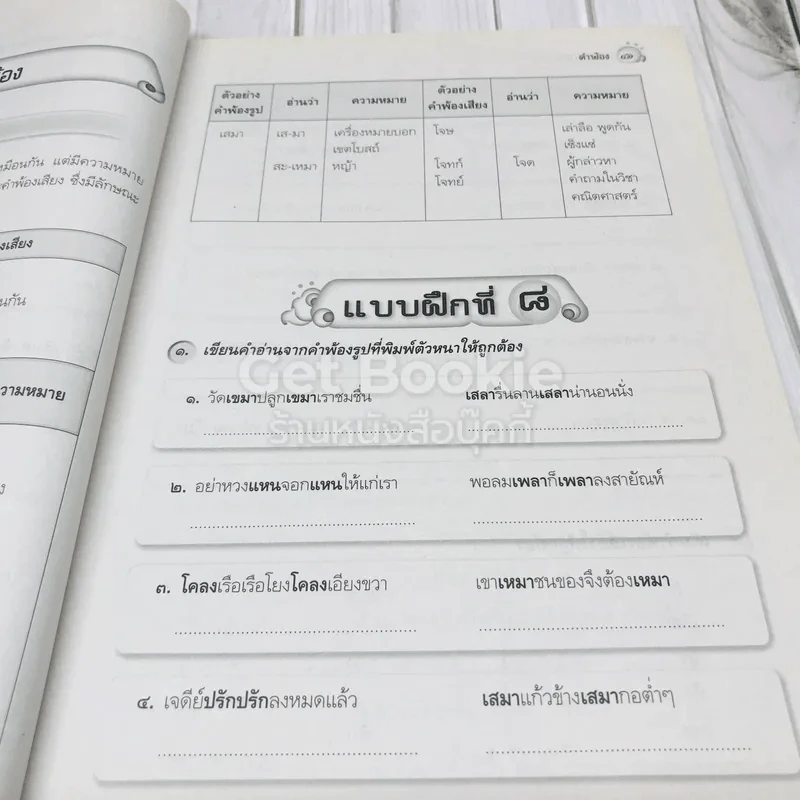 คำพ้อง
ตัวอย่าง คำพ้องรูป อ่านว่า ความหมาย ตัวอย่าง คำพ้องเสียง อ่านว่า ความหมาย
เสมา เส-มา เครื่องหมายบอก โจษ เล่าลือ พูดกัน
เขตโบสถ์ เซ็งแซ่
สะ-เหมา หญ้า โจทก์ โจด ผู้กล่าวหา
โจทย์ คำถามในวิชา
คณิตศาสตร์
แบบฝึกที่ ๘
๑. เขียนคำอ่านจากคำพ้องรูปที่พิมพ์ตัวหนาให้ถูกต้อง
Get Bookie
ร้านหนังสือบุ๊คกี้
๑. วัดเขมาปลูกเขมาเราชมชื่น เสลารื่นลานเสลาน่านอนนั่ง
๒. อย่าหวงแหนจอกแหนให้แก่เรา พอลมเพลาก็เพลาลงสายัณห์
๓. โคลงเรือเรือโยงโคลงเอียงขวา เขาเหมาชนของจึงต้องเหมา
๔. เจดีย์ปรักปรักลงหมดแล้ว เสมาแก้วข้างเสมากอต่ำๆ
หมือนกัน แต่มีความหมาย
คำพ้องเสียง ซึ่งมีลักษณะ
งเสียง
นกัน
วามหมาย